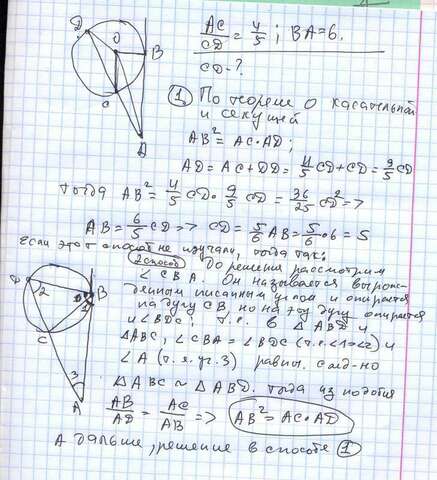 D
O
B
C
A
AC/CD = 4/5 ; BA=6.
CD-?
① По теореме о касательной
и секущей
AB² = AC·AD ;
AD = AC + DD = 4/5 CD + CD = 9/5 CD
тогда AB² = 4/5 CD · 9/5 CD = 36/25 CD² =>
AB = 6/5 CD => CD = 5/6 AB = 5/6 · 6 = 5
Если этот способ не изучали, тогда так:
2 способ До решения рассмотрим
∠CBA. Он называется вырож-
денным вписанным углом и опирается
на дугу CB, но на эту дугу опирается
и ∠BDC; т.е. в △ABD и
△ABC, ∠CBA = ∠BDC (т.е. <1=<2) и
∠A (т.я. уг.3) равны. след-но
△ABC ~ △ABD. тогда из подобия
AB/AD = AC/AB => AB² = AC·AD
А дальше, решение в способе ①
D
2
B
1
C
3
A